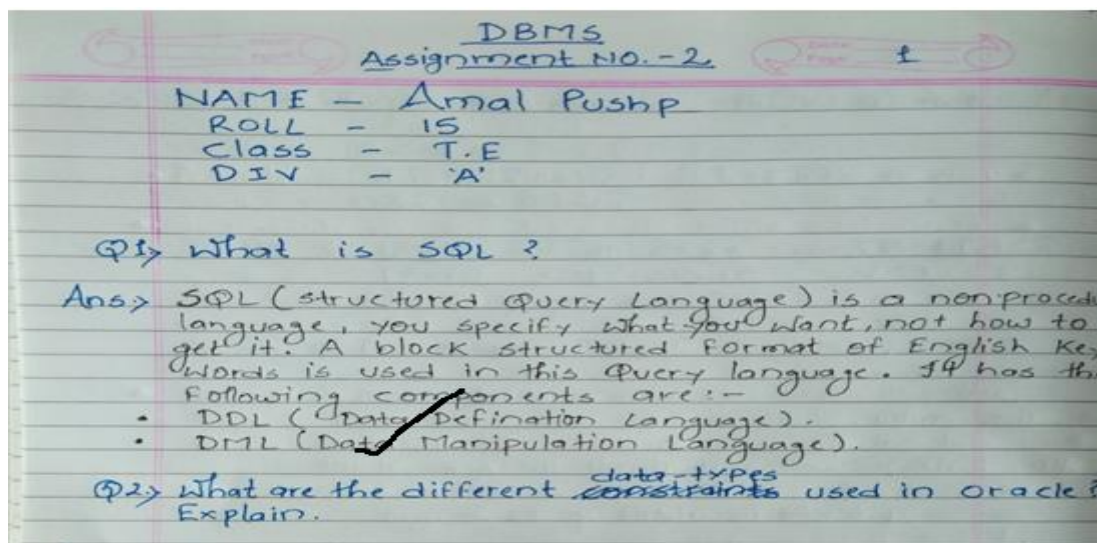 DBMS
Assignment NO.-2 1
NAME - Amal Pushp
ROLL - 15
Class - T.E
DIV - 'A'
Q1> What is SQL ?
Ans> SQL (structured Query Language) is a nonproced
language, you specify what you want, not how to
get it. A block structured format of English Key
words is used in this Query language. It has th
following components are:-
• DDL (Data Defination Language).
• DML (Data Manipulation Language).
data-types
Q2> What are the different constraints used in oracle ?
Explain.